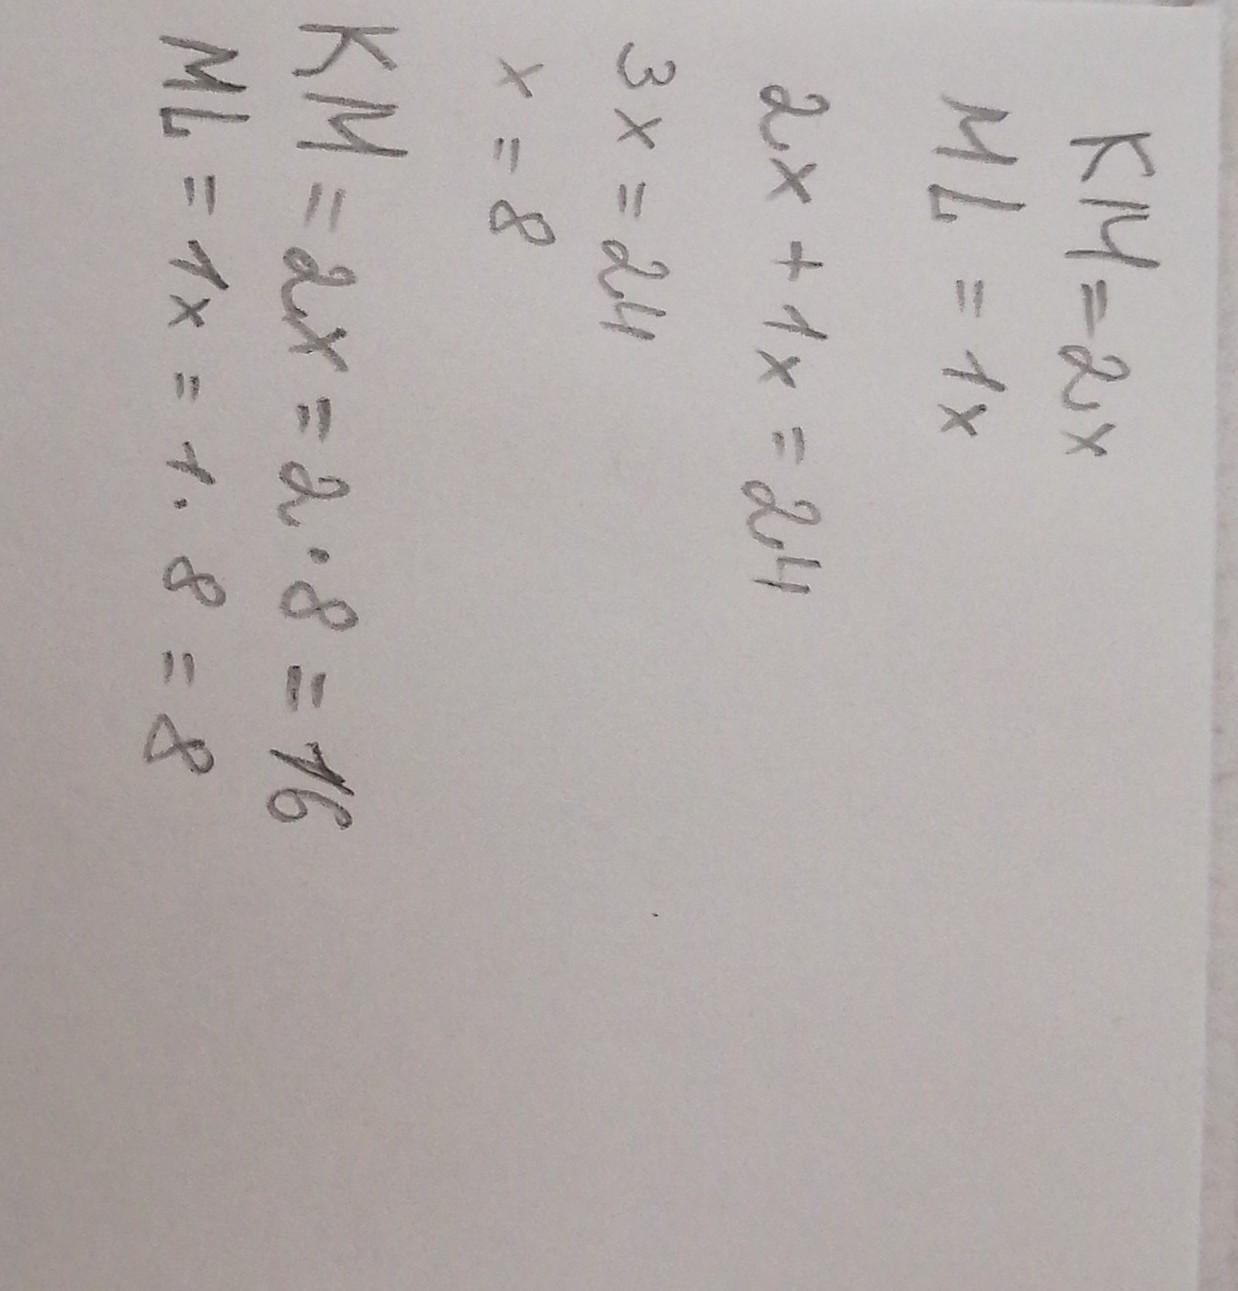 KM = 2x
ML = 1x
2x + 1x = 24
3x = 24
x = 8
KM = 2x = 2 · 8 = 16
ML = 1x = 1 · 8 = 8